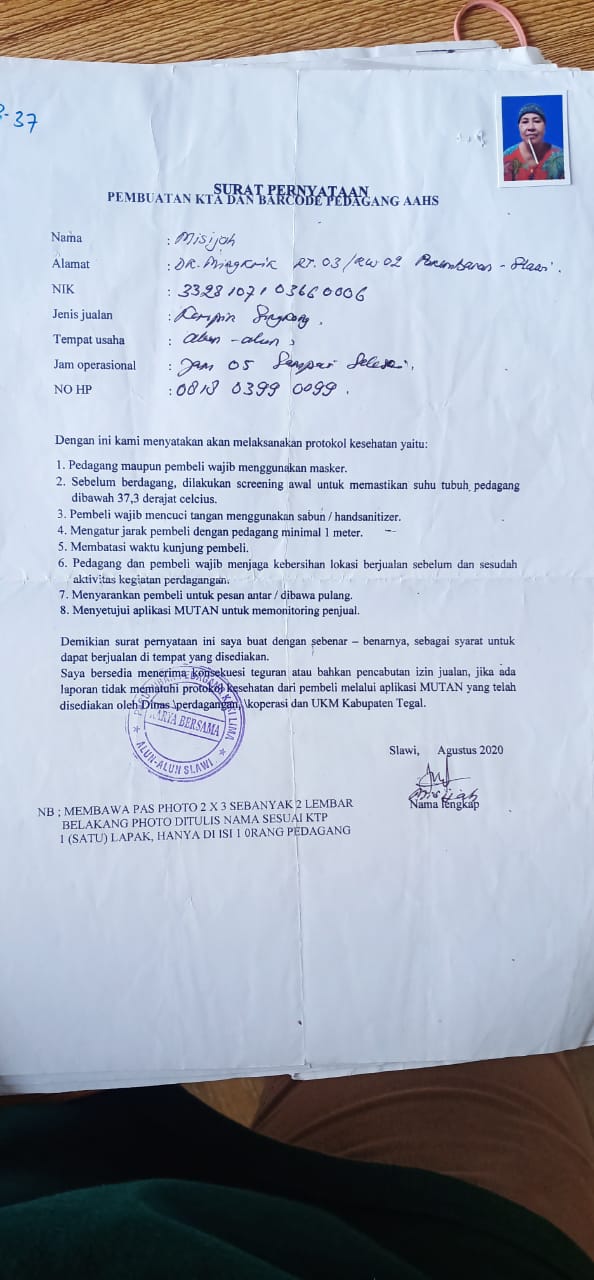 -37
SURAT PERNYATAAN
PEMBUATAN KTA DAN BARCODE PEDAGANG AAHS
Nama : Misijah
Alamat : DR. RT. 03/RW 02 - Slawi.
NIK : 3328107103660006
Jenis jualan : Singkong.
Tempat usaha : alun-alun
Jam operasional : Jam 05 Sampai Selesai.
NO HP : 0818 0399 0099.
Dengan ini kami menyatakan akan melaksanakan protokol kesehatan yaitu:
1. Pedagang maupun pembeli wajib menggunakan masker.
2. Sebelum berdagang, dilakukan screening awal untuk memastikan suhu tubuh pedagang
dibawah 37,3 derajat celcius.
3. Pembeli wajib mencuci tangan menggunakan sabun / handsanitizer.
4. Mengatur jarak pembeli dengan pedagang minimal 1 meter.
5. Membatasi waktu kunjung pembeli.
6. Pedagang dan pembeli wajib menjaga kebersihan lokasi berjualan sebelum dan sesudah
aktivitas kegiatan perdagangan.
7. Menyarankan pembeli untuk pesan antar / dibawa pulang.
8. Menyetujui aplikasi MUTAN untuk memonitoring penjual.
Demikian surat pernyataan ini saya buat dengan sebenar – benarnya, sebagai syarat untuk
dapat berjualan di tempat yang disediakan.
Saya bersedia menerima konsekuesi teguran atau bahkan pencabutan izin jualan, jika ada
laporan tidak mematuhi protokol kesehatan dari pembeli melalui aplikasi MUTAN yang telah
disediakan oleh Dinas \perdagangan, \koperasi dan UKM Kabupaten Tegal.
PEDAGANG KAKI LIMA
KARYA BERSAMA
ALUN-ALUN SLAWI
Slawi, Agustus 2020
Misijah
Nama lengkap
NB ; MEMBAWA PAS PHOTO 2 X 3 SEBANYAK 2 LEMBAR
BELAKANG PHOTO DITULIS NAMA SESUAI KTP
1 (SATU) LAPAK, HANYA DI ISI 1 0RANG PEDAGANG